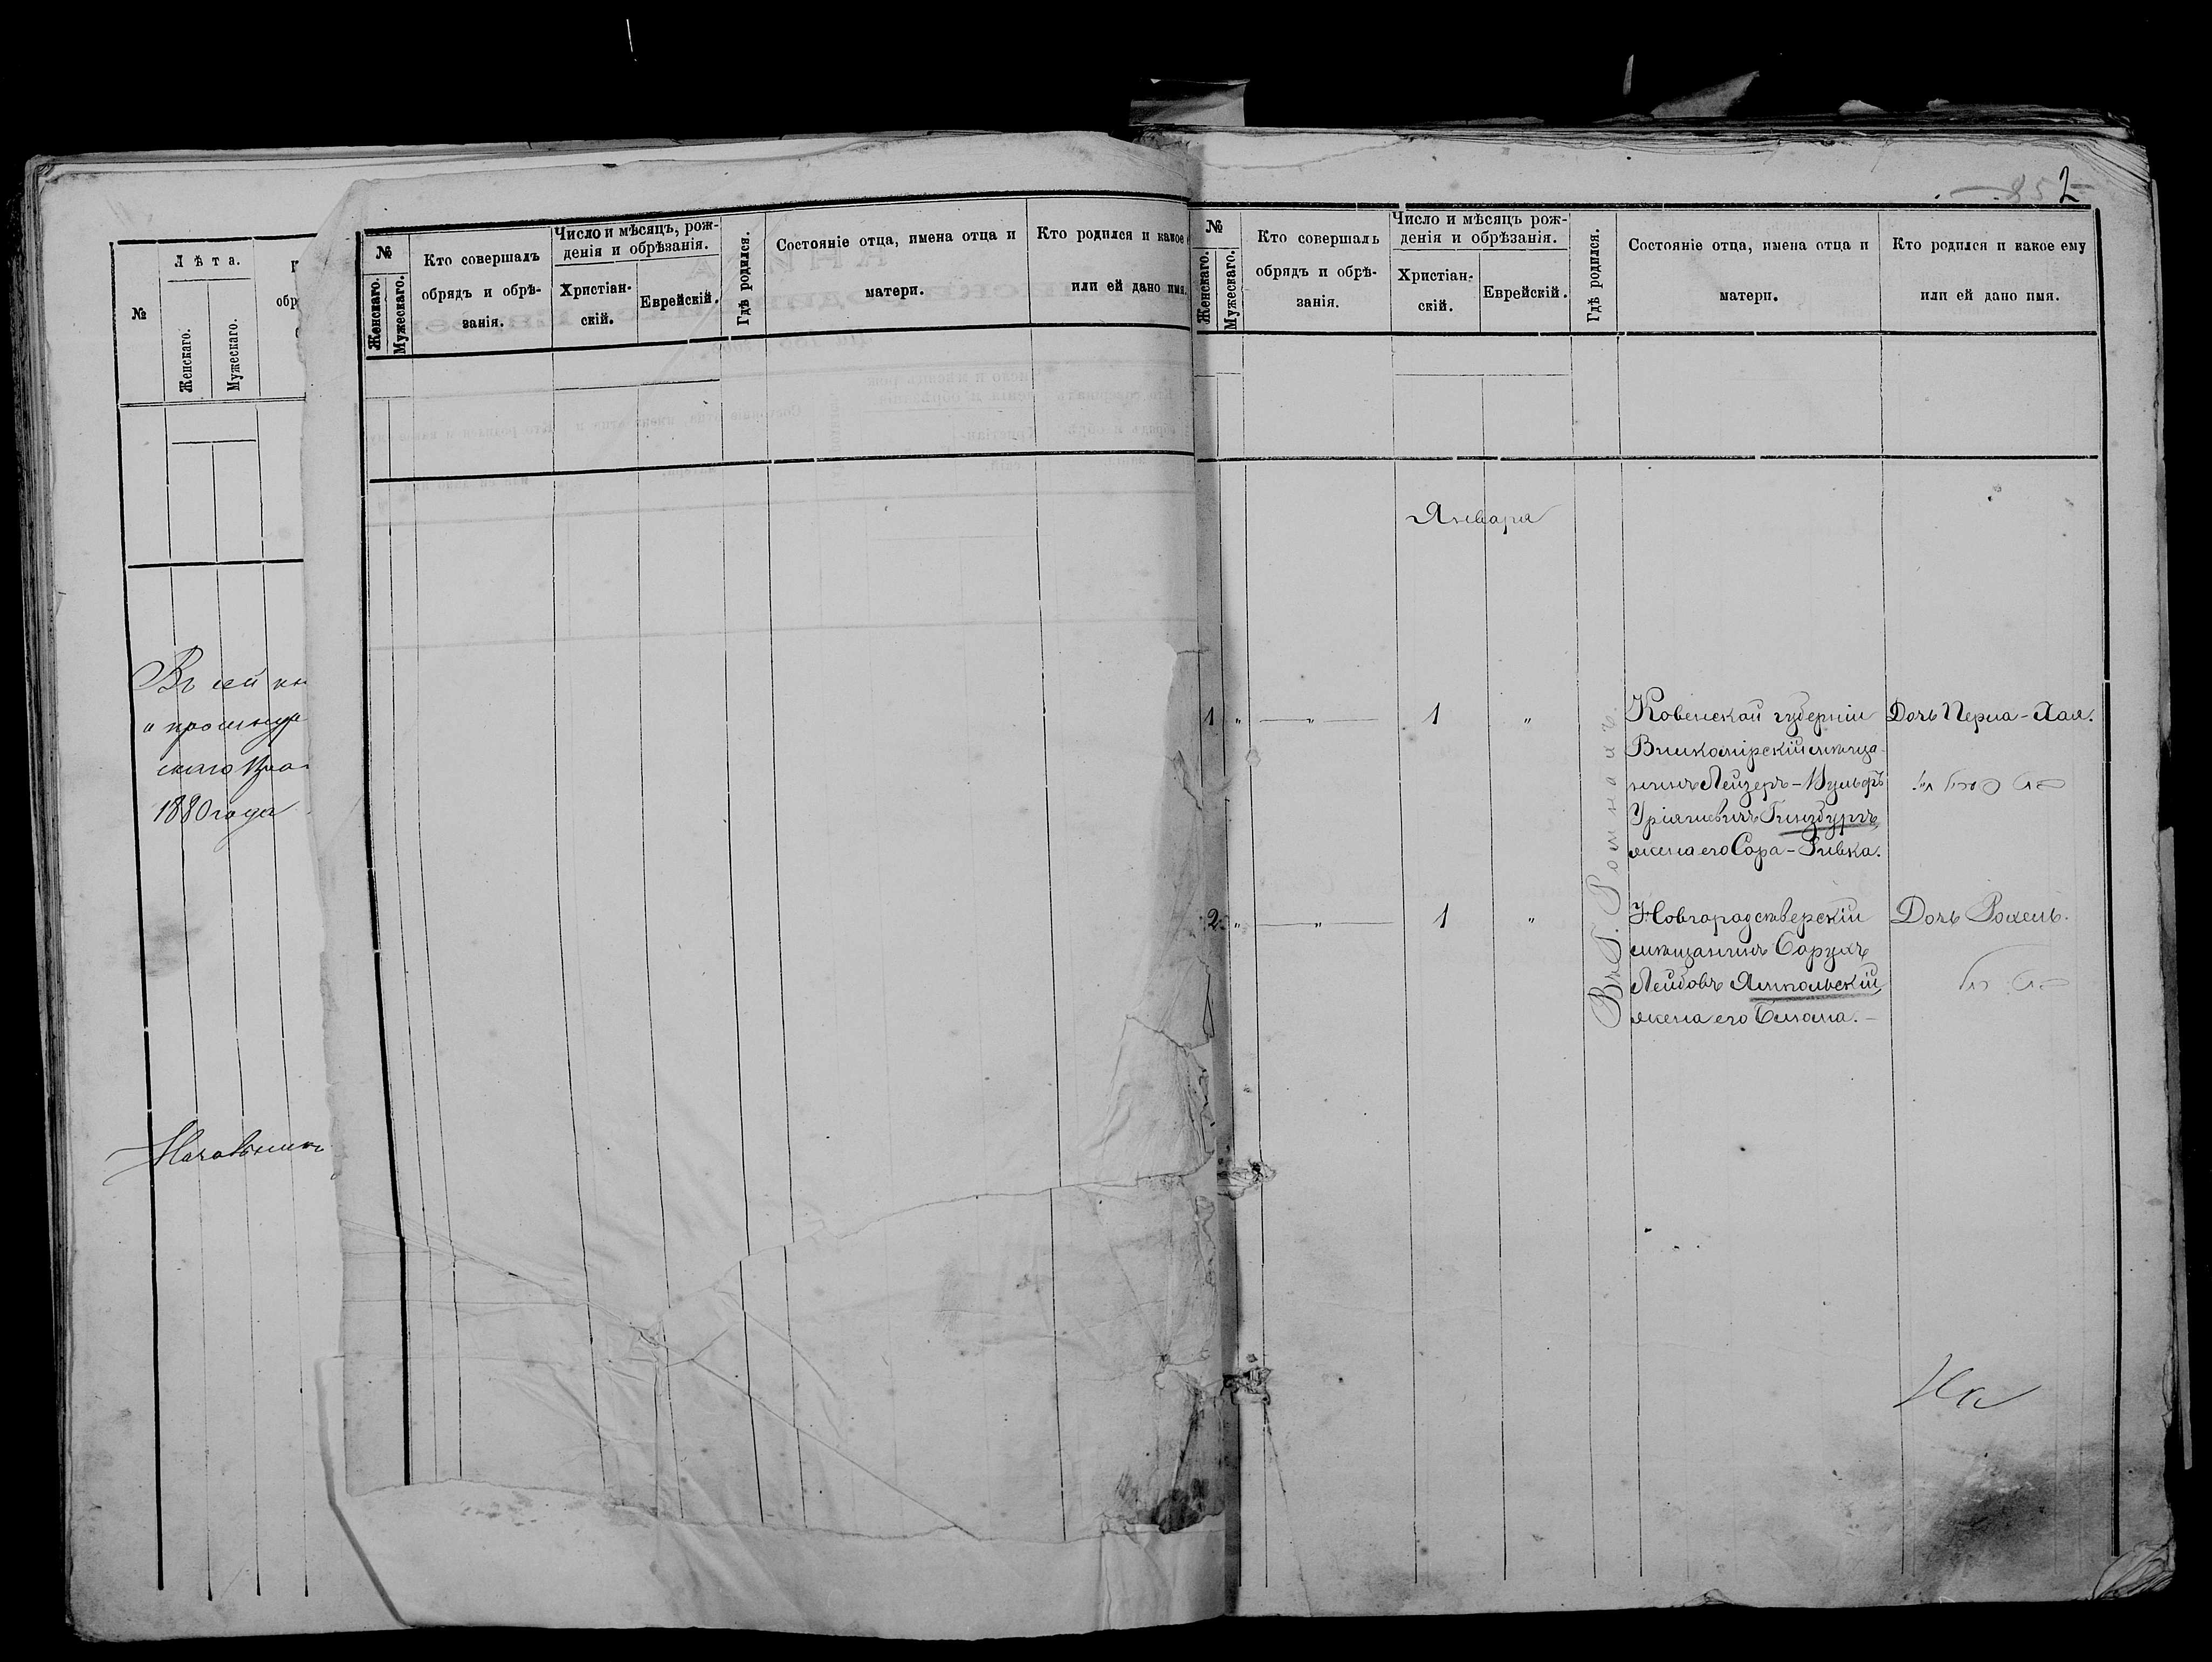 №
Лѣта.
Женскаго.
Мужескаго.
Въ сей
1880 года
№
Женскаго.
Мужескаго.
Кто совершалъ
обрядъ и обрѣ-
занія.
Число и мѣсяцъ, рож-
денія и обрѣзанія.
Христіан-
скій.
Еврейскій.
Гдѣ родился.
Состояніе отца, имена отца и
матери.
Кто родился и какое
или ей дано имя.
852
2
№
Женскаго.
Мужескаго.
Кто совершалъ
обрядъ и обрѣ-
занія.
Число и мѣсяцъ рож-
денія и обрѣзанія.
Христіан-
скій.
Еврейскій.
Гдѣ родился.
Состояніе отца, имена отца и
матери.
Кто родился и какое ему
или ей дано имя.
Января
1 " — " — 1 "
Въ Г. Ромнахъ.
Ковенской губерніи
Вилкомірскій мѣща-
нинъ Лейзеръ-Вульфъ
Уріяшевичъ Гинзбургъ
жена его Сора-Ривка.
Дочь Перла-Хая.
2 " — " — 1 "
Новгородсѣверскій
мѣщанинъ Борухъ
Лейбовъ Ямпольскій
жена его Блюма. –
Дочь Рохель.